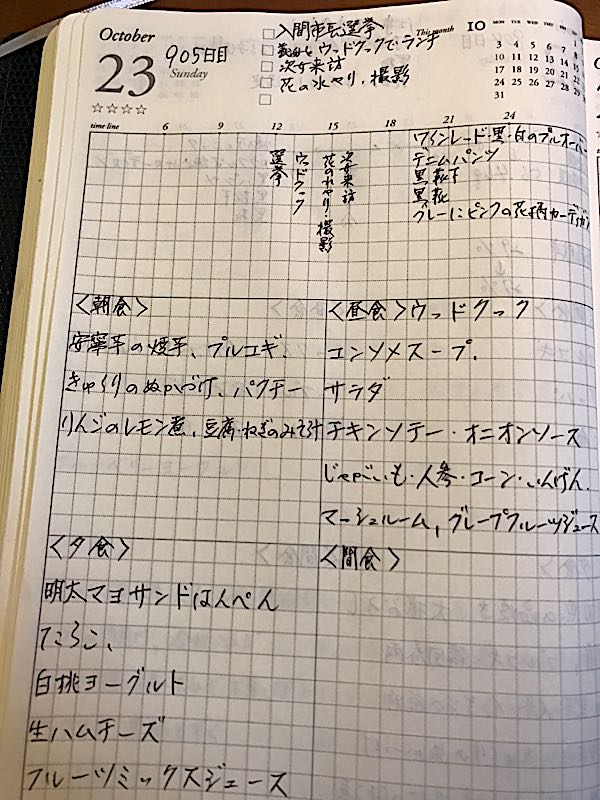 October
23
Sunday
905日目
☆☆☆☆
入間市長選挙
ウッドクックでランチ
次女来訪
花の水やり・撮影
This month 10
MON TUE WED THU FRI
3 4 5 6 7 8
10 11 12 13 14 15
17 18 19 20 21 22
24 25 26 27 28 29
31
time line 6 9 12 15 18 21 24
選挙
ウッドクック
花の水やり・撮影
次女来訪
ワインレード・黒・白のプルオーバー
デニムパンツ
黒靴下
黒靴
グレーにピンクの花柄カーディガン
<朝食>
安寧芋の焼芋、プルコギ、
きゅうりのぬかづけ、パクチー
りんごのレモン煮、豆腐・ねぎのみそ汁
<昼食>ウッドクック
コンソメスープ、
サラダ
チキンソテー・オニオンソース
じゃがいも・人参・コーン・いんげん、
マーシュルーム、グレープフルーツジュース
<夕食>
明太マヨサンドはんぺん
たらこ、
白桃ヨーグルト
生ハムチーズ
フルーツミックスジュース
<間食>